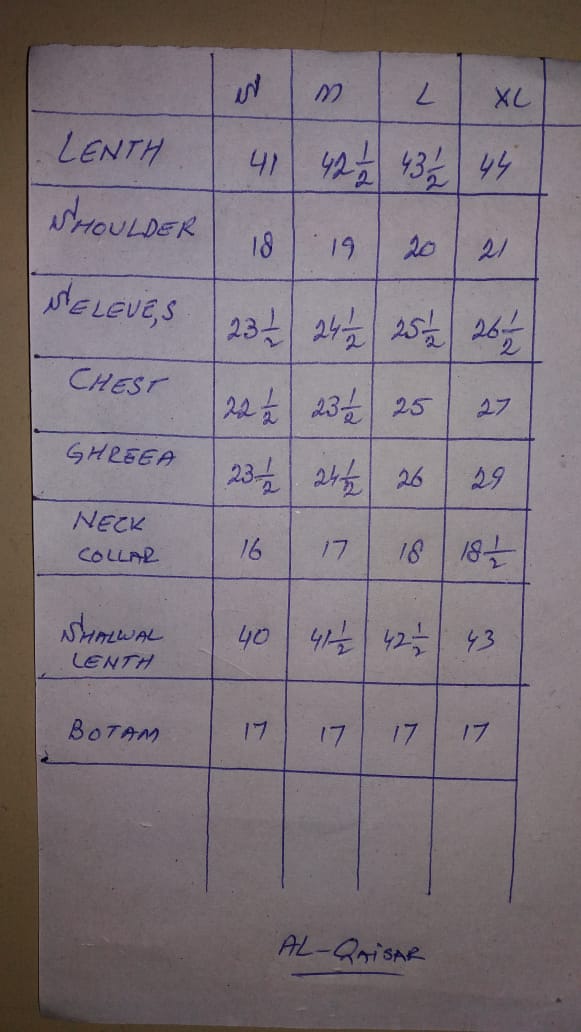 S M L XL
LENTH 41 42 1/2 43 1/2 44
SHOULDER 18 19 20 21
SELEVE,S 23 1/2 24 1/2 25 1/2 26 1/2
CHEST 22 1/2 23 1/2 25 27
GHREEA 23 1/2 24 1/2 26 29
NECK
COLLAR 16 17 18 18 1/2
SHALWAL
LENTH 40 41 1/2 42 1/2 43
BOTAM 17 17 17 17
AL-QAISAR